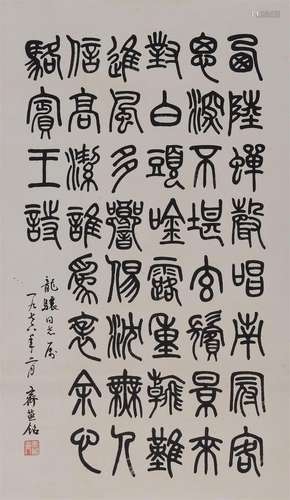 西陸蟬聲唱南冠客
思深不堪玄鬢景來
對白頭唫露重飛難
進風多響易沈無人
信高潔誰為表余心
駱賓王詩
龍驤同志屬
一九七六年二月 齊燕銘